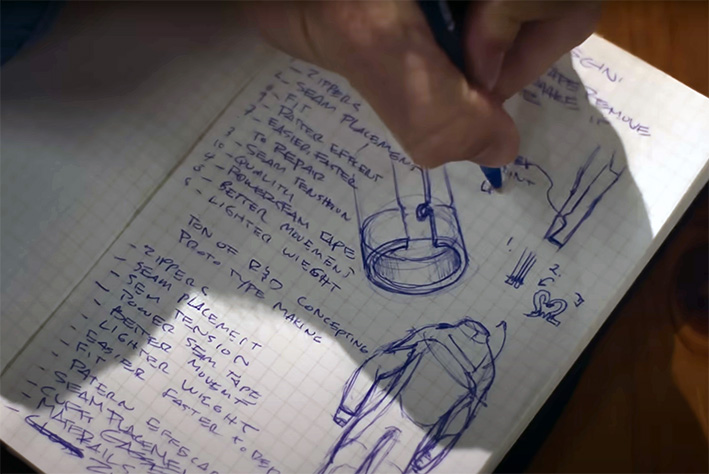 - ZIPPERS
- SEAM PLACEMENT
- FIT
- PATTER EFFICENT
- EASIER, FASTER
TO REPAIR
- SEAM TENSHION
- QUALITY
- POWERSEAM TAPE
- BETTER MOVEMENT
- LIGHTER WIEGHT
TON OF R&D CONCEPTING
PROTO TYPE MAKING
- ZIPPERS
- SEAM PLACEMENT
- SEM TENSION
- POWER SEAM TAPE
- BETTER MOVEMENT
- LIGHTER WIEGHT
- EASIER FASTER TO
- FIT
- PATERN
- SEAM PLACEMENT
- MATERAILS
REMOVE
1.
2.
3